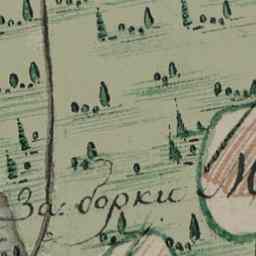 За: борки